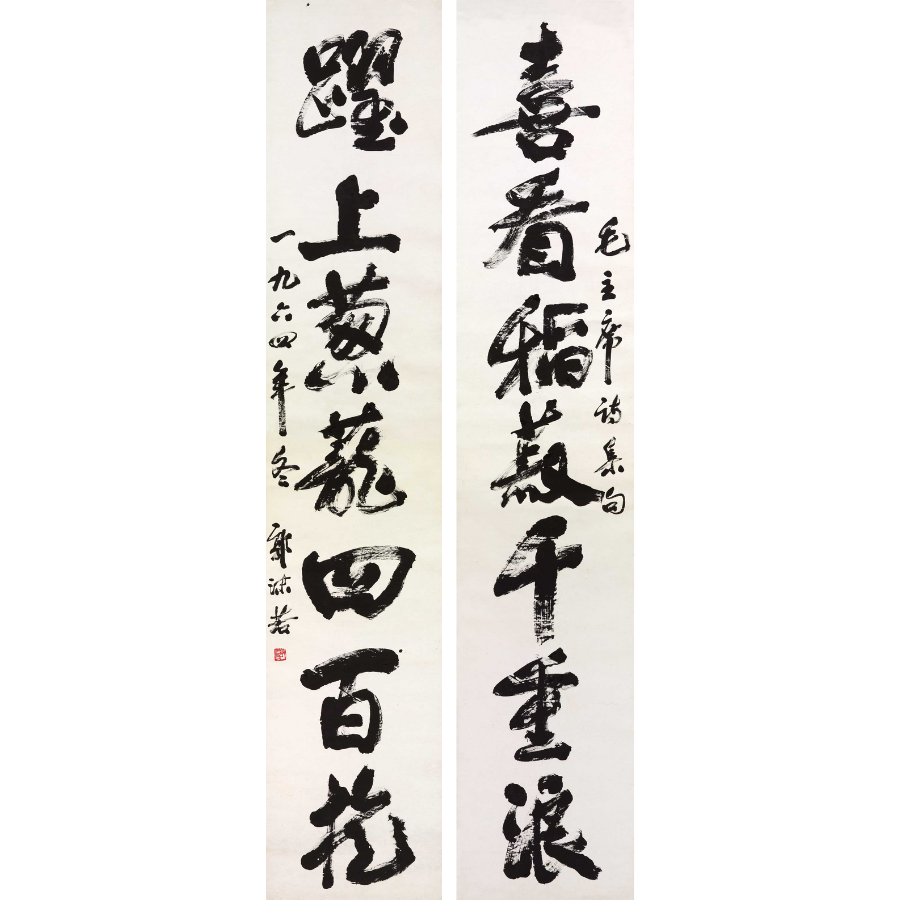 毛主席詩集句
喜看稻菽千重浪
躍上葱蘢四百旋
一九六四年冬 郭沫若